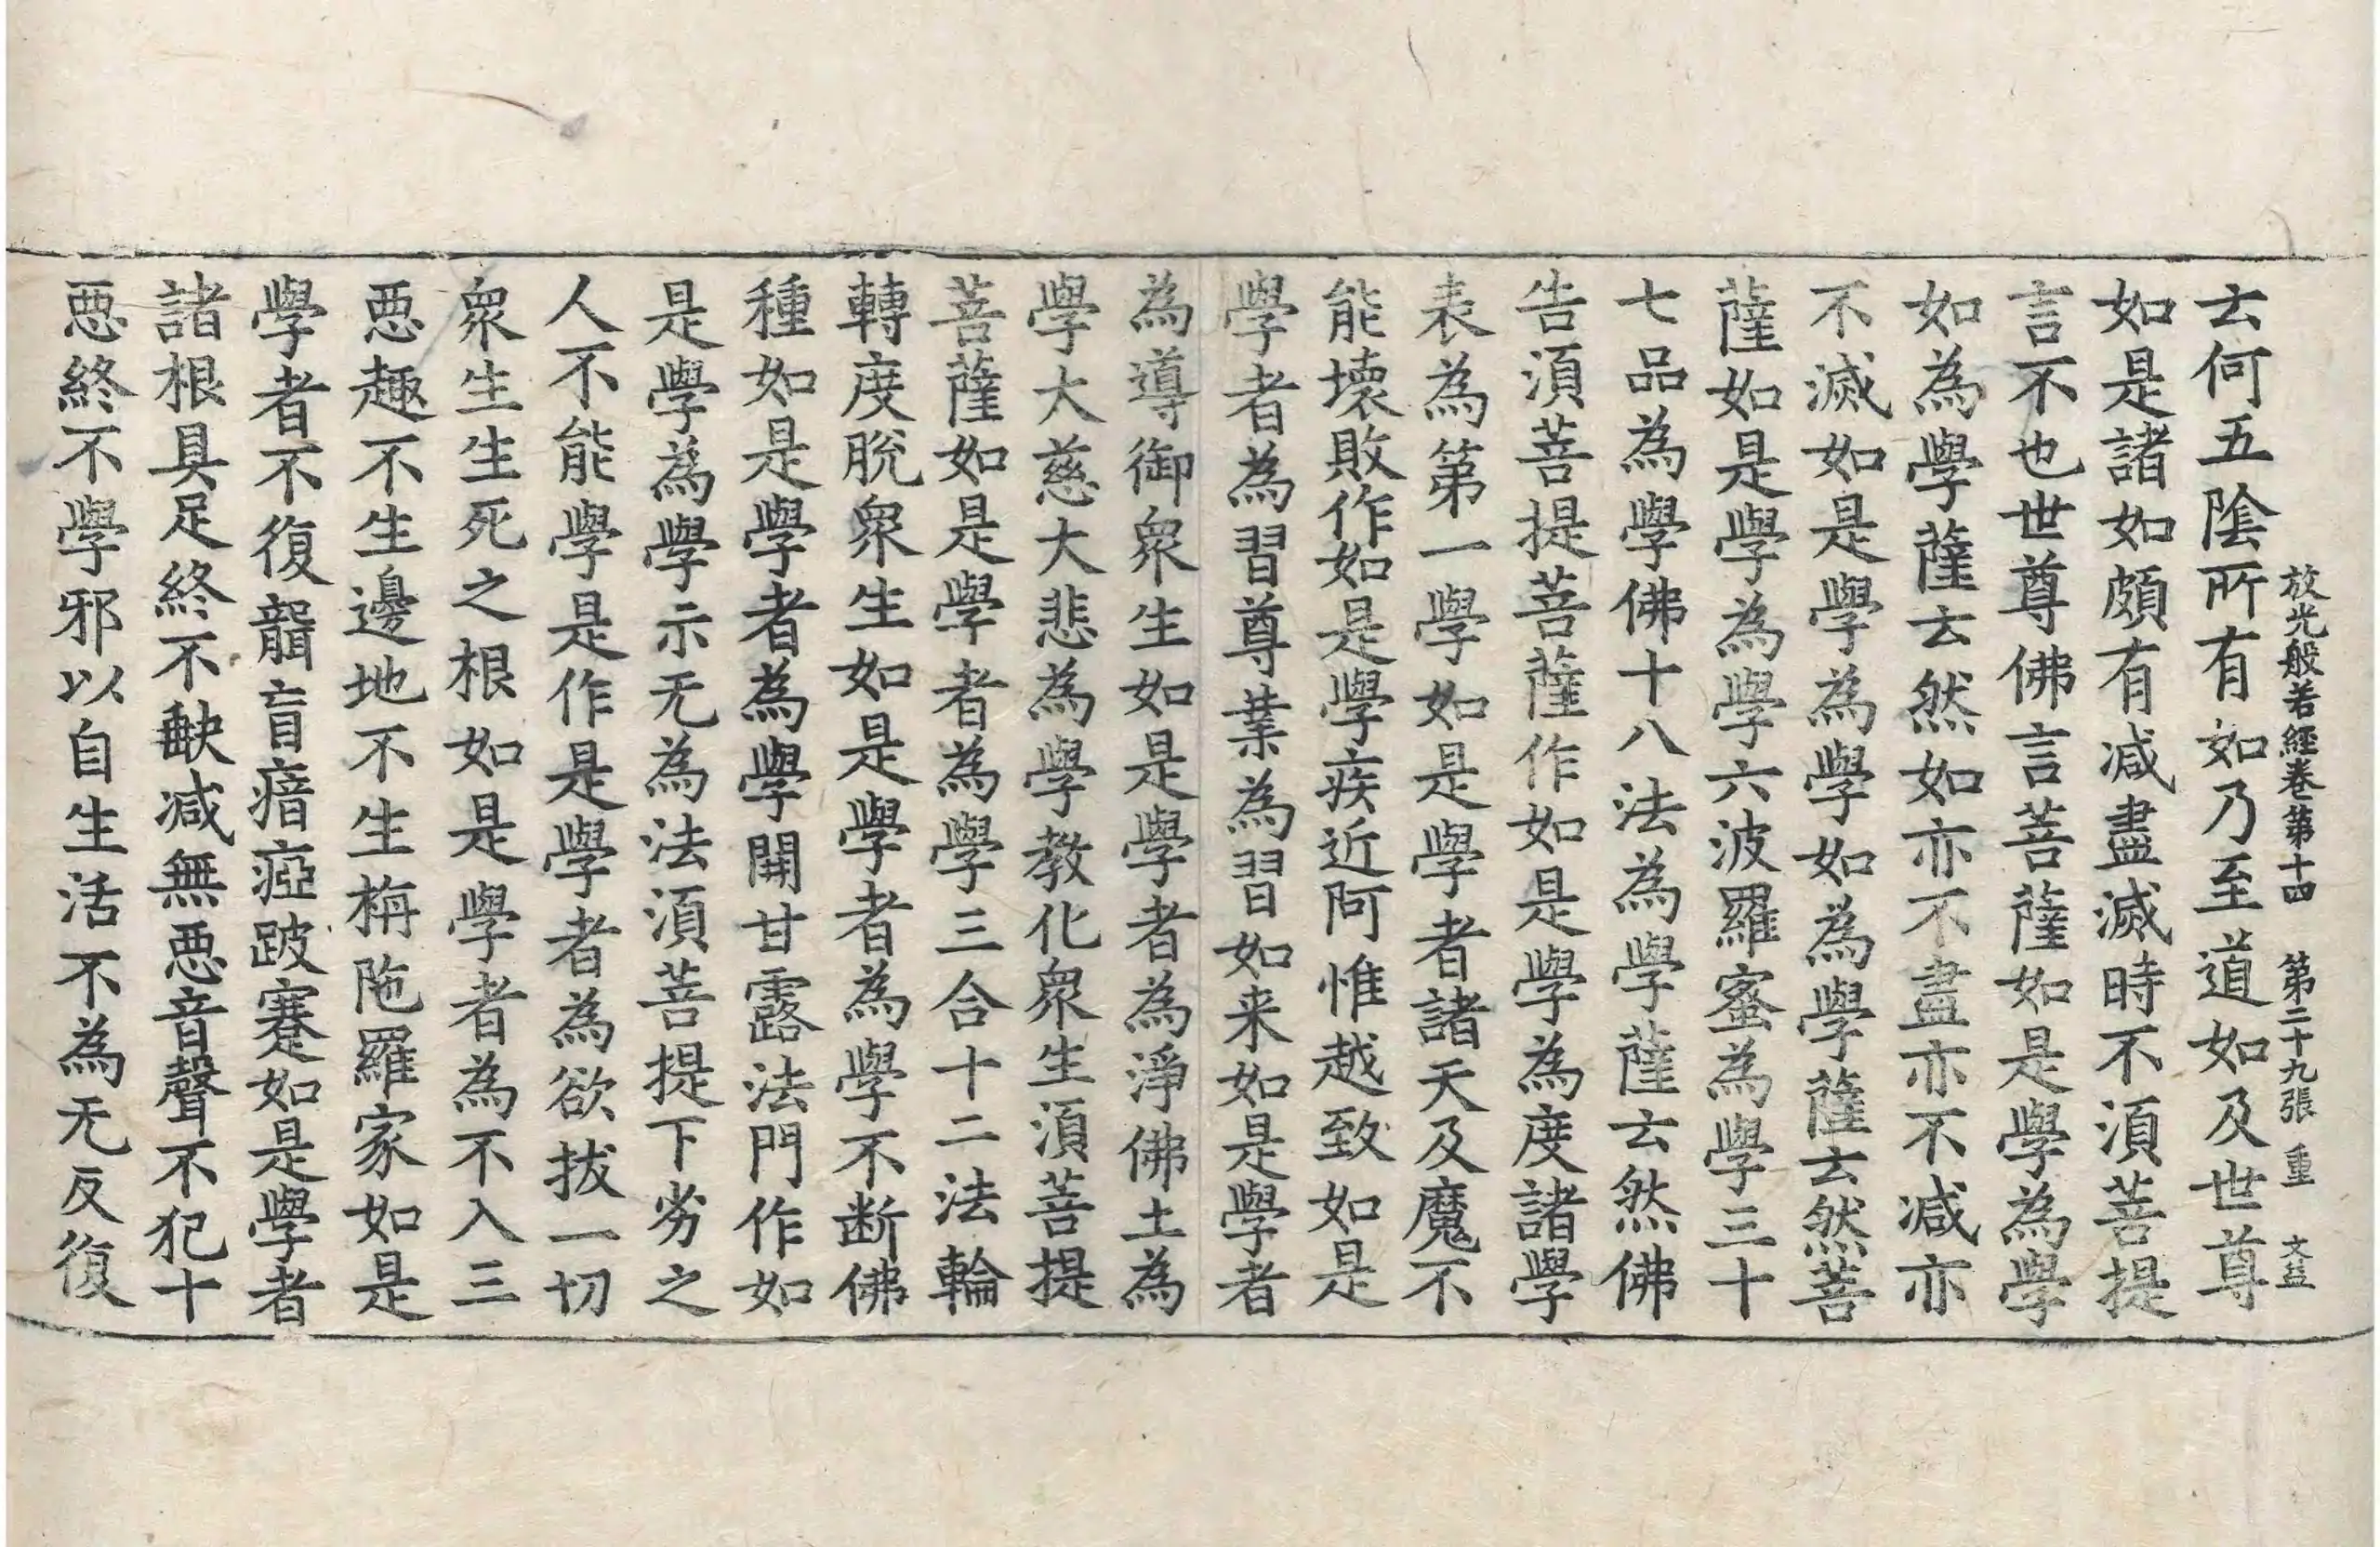 放光般若經卷第十四 第二十九張 重 文益
云何五陰所有如乃至道如及世尊
如是諸如頗有减盡滅時不須菩提
言不也世尊佛言菩薩如是學為學
如為學薩云然如亦不盡亦不减亦
不滅如是學為學如為學薩云然菩
薩如是學為學六波羅蜜為學三十
七品為學佛十八法為學薩云然佛
告須菩提菩薩作如是學為度諸學
表為第一學如是學者諸天及魔不
能壞敗作如是學疾近阿惟越致如是
學者為習尊業為習如来如是學者
為導御衆生如是學者為淨佛土為
學大慈大悲為學教化衆生須菩提
菩薩如是學者為學三合十二法輪
轉度脫衆生如是學者為學不断佛
種如是學者為學開甘露法門作如
是學為學示无為法須菩提下劣之
人不能學是作是學者為欲拔一切
衆生生死之根如是學者為不入三
惡趣不生邊地不生栴陁羅家如是
學者不復聾盲瘖瘂跛蹇如是學者
諸根具足終不缺减無惡音聲不犯十
惡終不學邪以自生活不為无反復